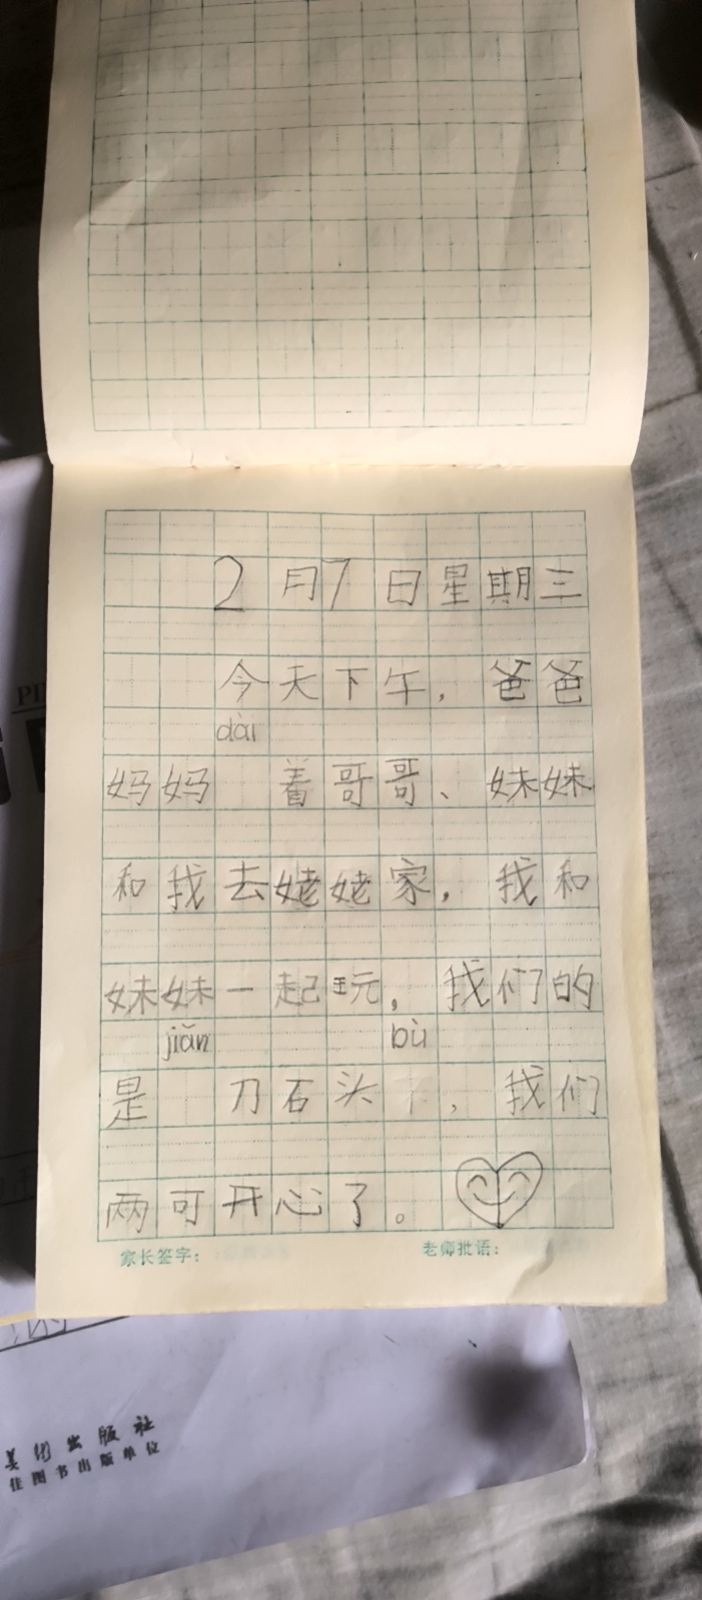 2月7日星期三
今天下午，爸爸
dài
妈妈 着哥哥、妹妹
和我去姥姥家，我和
妹妹一起玩，我们的
jiǎn bù
是 刀石头 ，我们
两可开心了。
家长签字： 老师批语：
美术出版社
佳图书出版单位